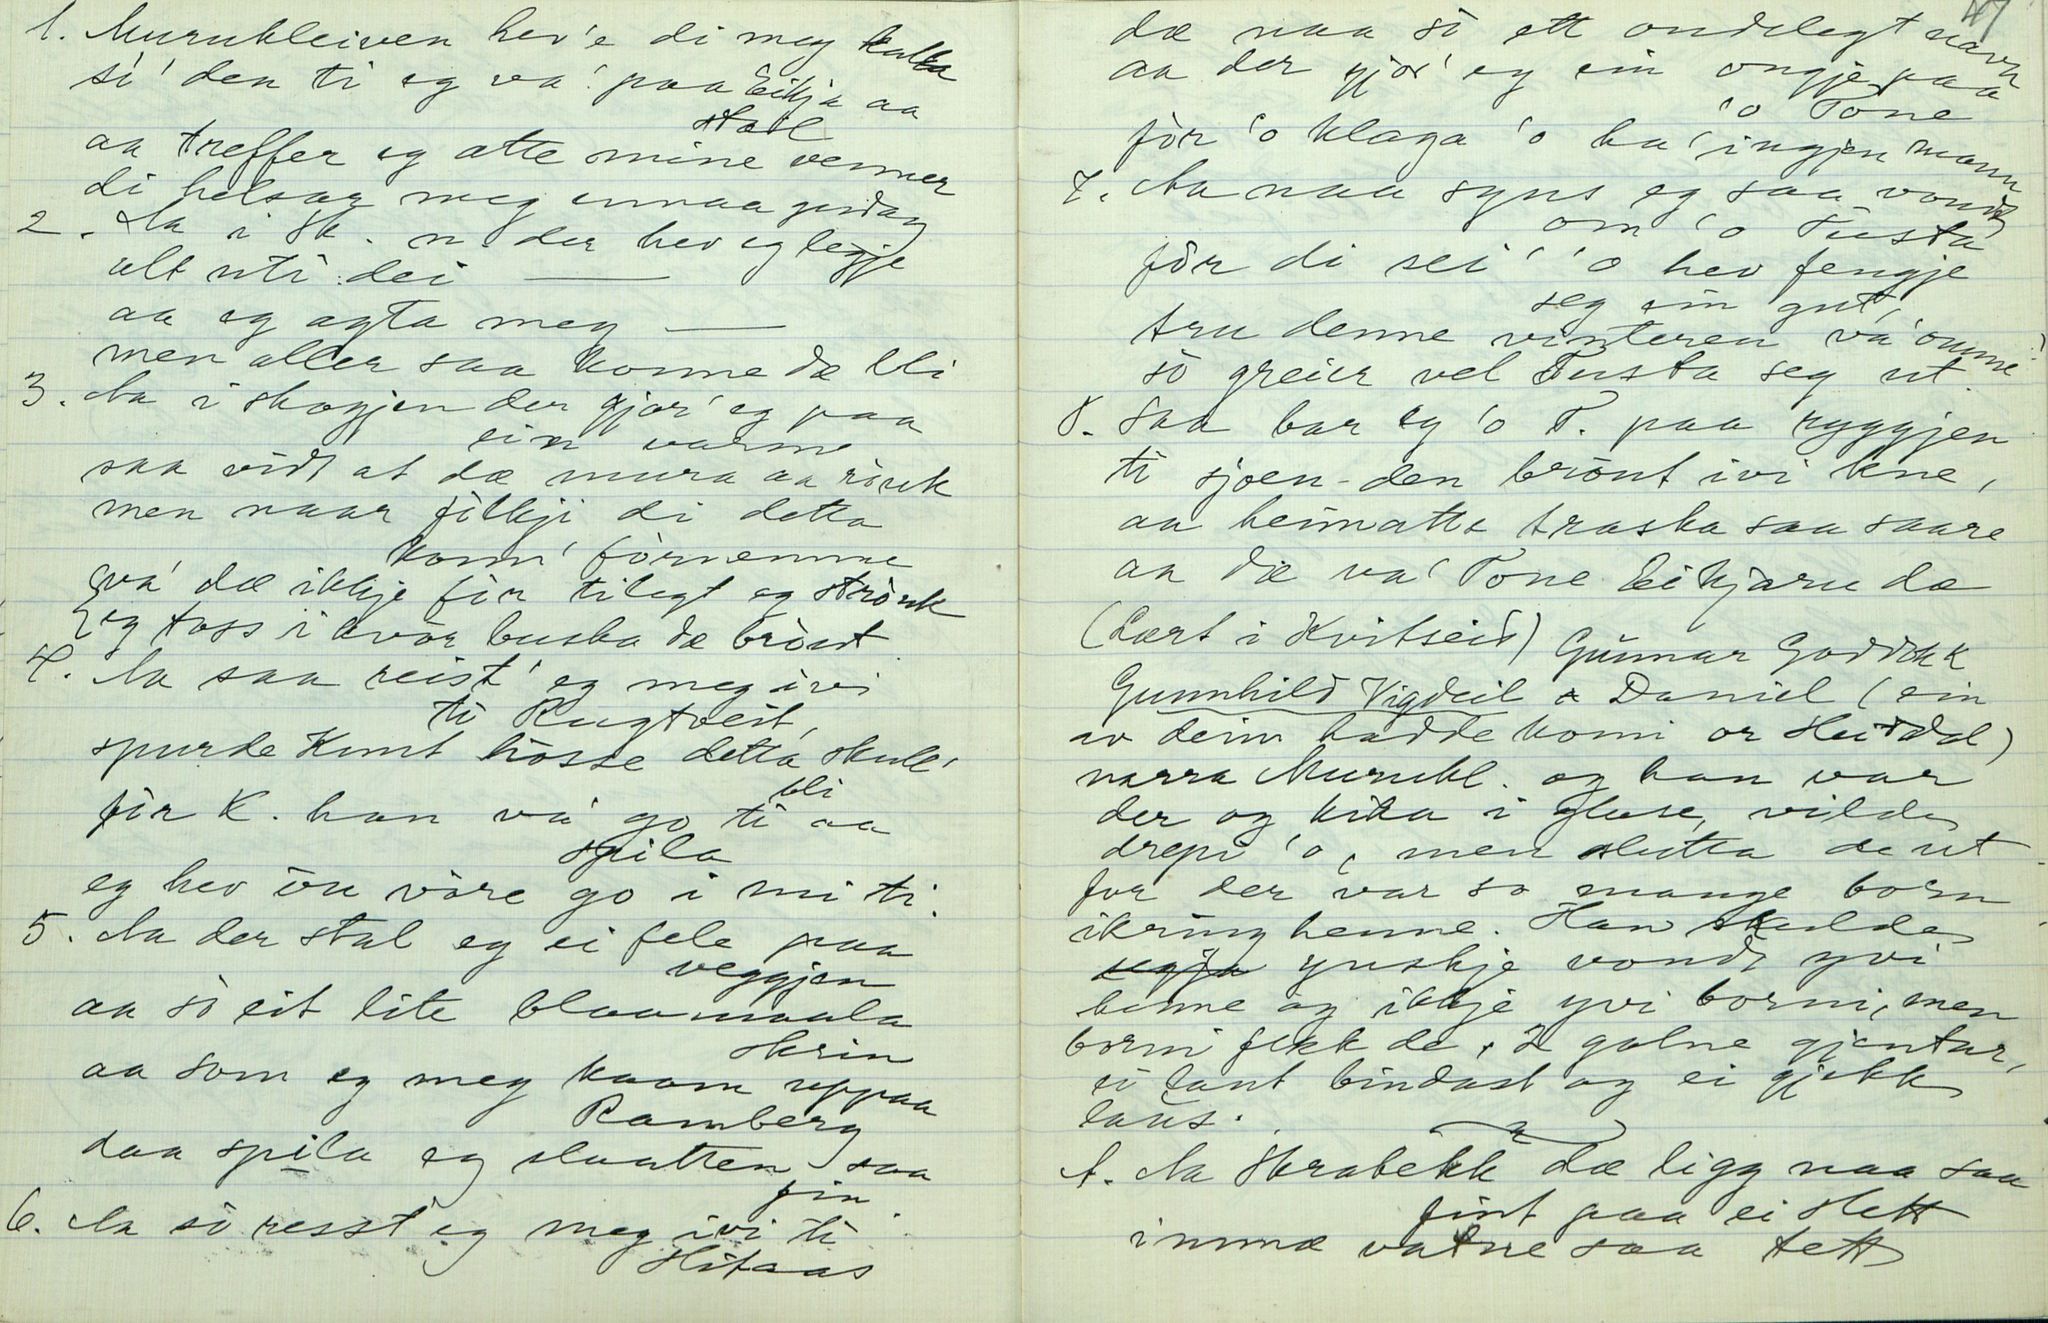 1. Murukleiven hev'e di meg kalla
si' den ti eg va' paa Eikja aa
støil
aa treffer eg atte mine venner
di helsar meg ennaa godag
2. Aa i Sk. n der hev eg legje
alt uti dei ———
aa eg agta meg ———
men aller saa konne dæ bli
3. Aa i skogjen der gjor' eg paa
ein varme
saa vidt at dæ mura aa röuk
men naar fölkji di detta
kom' förnemme
va' dæ ikkje för tilegt eg ströuk
eg toss i kvör buska dæ bröut
4. Aa saa reist' eg meg ivi
ti Rugtveit,
spurde Knut hösse detta skull'
bli
för K. han va' go ti aa
spila
eg hev öu vöre go i mi ti.
5. Aa der stal eg ei fele paa
veggjen
aa sö eit lite blaamaala
skrin
aa som eg meg kaam uppaa
Ramberg
daa spila eg slaatten saa
fin
6. Aa sö resst eg meg ivi ti
Slitaas
47
dæ naa sö ett ondelegt navn
aa der gjor' eg ein ongje paa
'o Tone
för 'o klaga 'o ha' ingjen mann
7. Aa naa syns eg saa vondt
om 'o Tusta
för di sei' 'o hev fengje
seg ein gut,
tru denne vinteren va' omme!
sö greier vel Tusta seg ut.
8. Saa bar eg 'o T. paa ryggjen
ti sjoen - den bröut ivi kne,
aa heimatte traska saa saare
aa dæ va' Tone Eikjaru dæ
(Lært i Kvitseid) Gunnar Goddokk
Gunnhild Vigdeil a Daniel (ein
av deim hadde komi or Heiddal)
narra Murukl. og han var
der og kika i gluse, vilde
drepi 'o, men slutta de ut
for der var so mange born
ikring henne. Han skulde
segja ynskje vondt yvi
henne og ikkje yvi borni, men
borni fekk de, 2 galne gjentur,
ei laut bindast og ei gjekk
laus.
1. Aa Skrabekk dæ ligg naa saa
fint paa ei slett
innmæ vatne saa tett